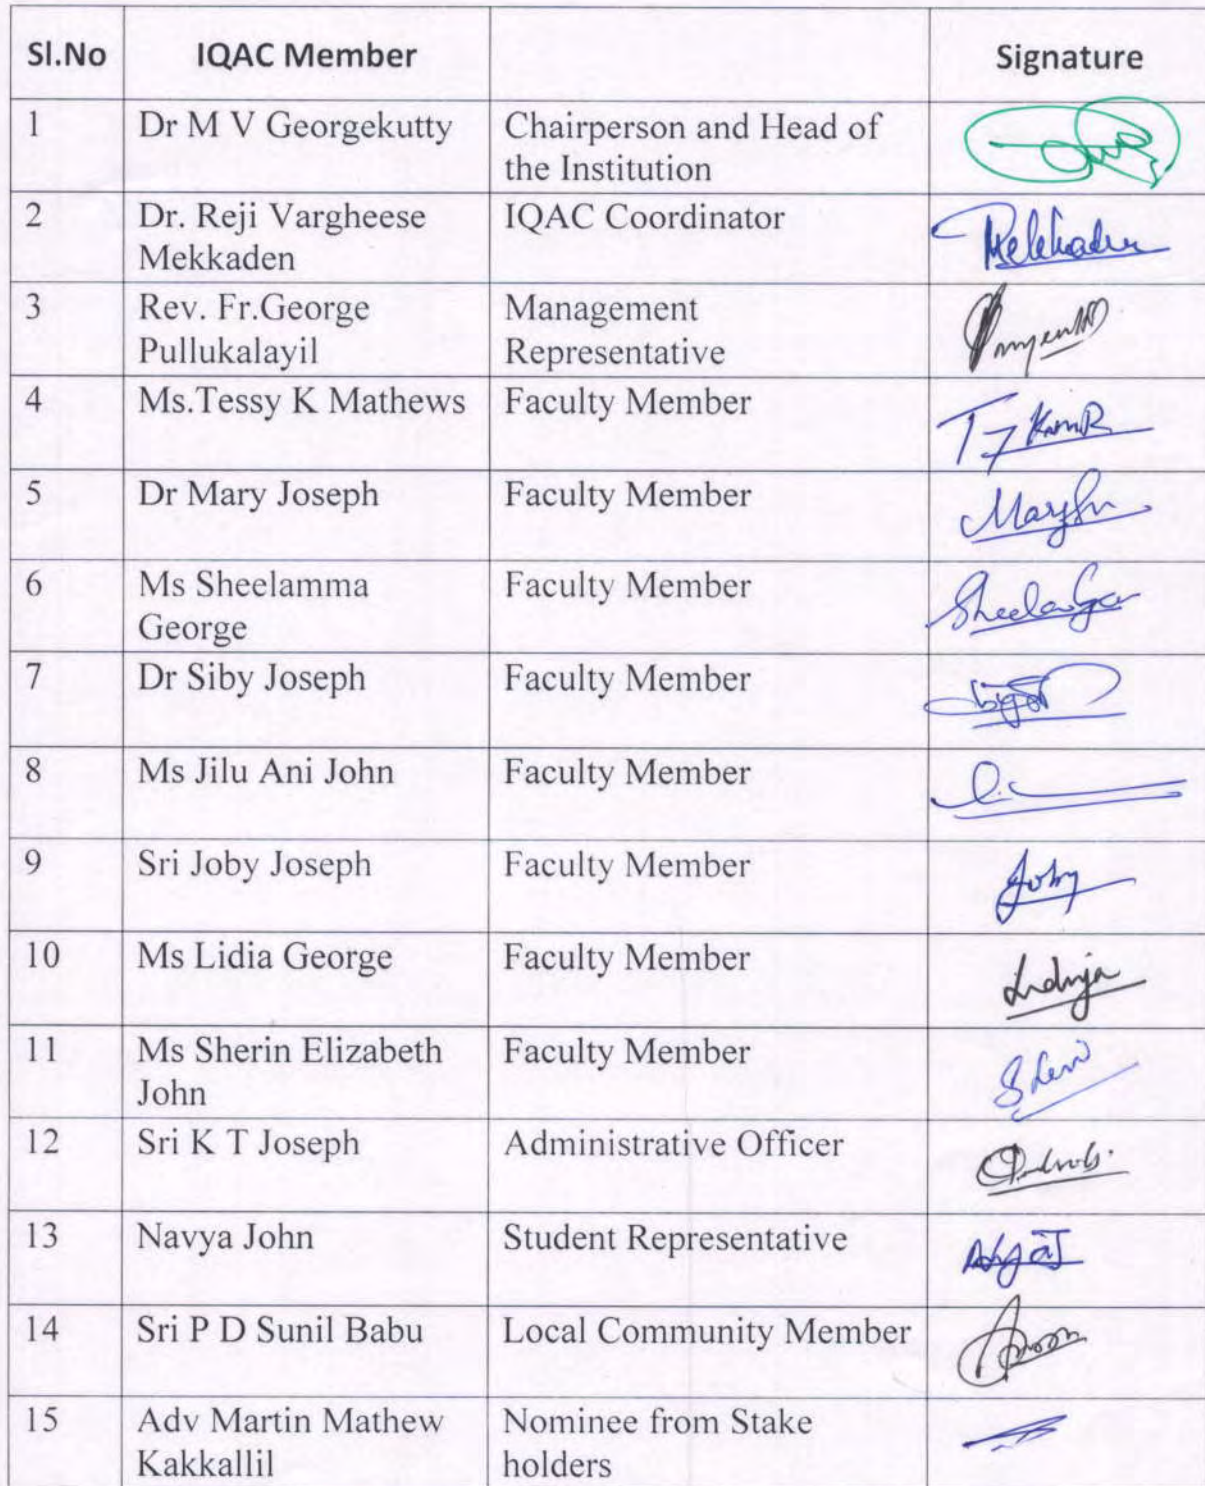 Sl.No IQAC Member Signature
1 Dr M V Georgekutty Chairperson and Head of
the Institution
2 Dr. Reji Vargheese IQAC Coordinator
Mekkaden
Mekkaden
3 Rev. Fr.George Management
Pullukalayil Representative
4 Ms.Tessy K Mathews Faculty Member
5 Dr Mary Joseph Faculty Member
6 Ms Sheelamma Faculty Member
George
7 Dr Siby Joseph Faculty Member
8 Ms Jilu Ani John Faculty Member
9 Sri Joby Joseph Faculty Member Joby
10 Ms Lidia George Faculty Member
11 Ms Sherin Elizabeth Faculty Member
John
12 Sri K T Joseph Administrative Officer
13 Navya John Student Representative
14 Sri P D Sunil Babu Local Community Member
15 Adv Martin Mathew Nominee from Stake
Kakkallil holders